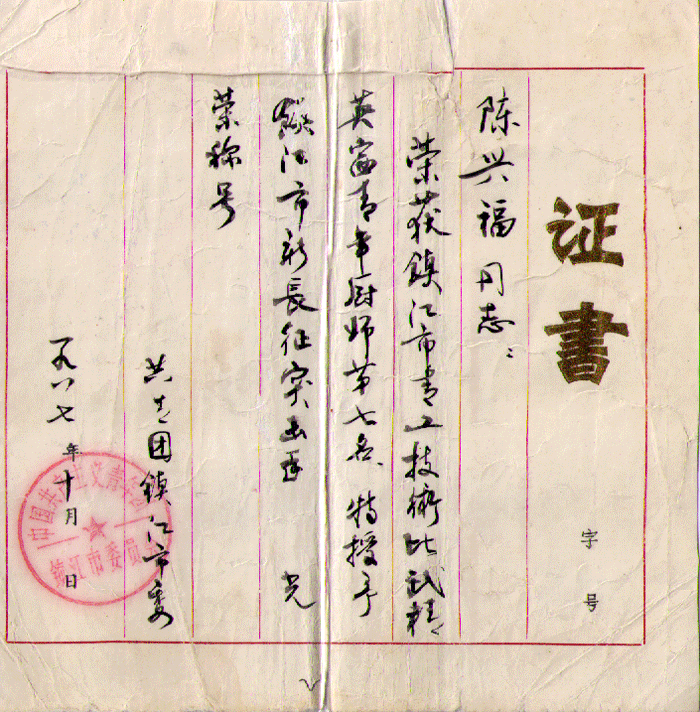 证書
字 号
陈兴福同志：
荣获鎮江市青工技術比武精
英赛青年厨师第七名、特授予
鎮江市新長征突击手 光
荣称号
共青团鎮江市委
一九八七年十月 日
中国共产主义青年团
镇江市委员会